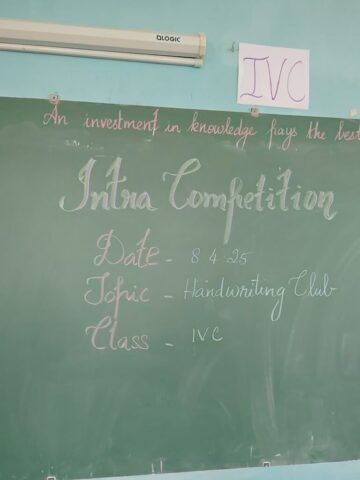 QLOGIC
IVC
An investment in knowledge pays the best
Intra Competition
Date - 8 4 25
Topic - Handwriting Club
Class - IVC